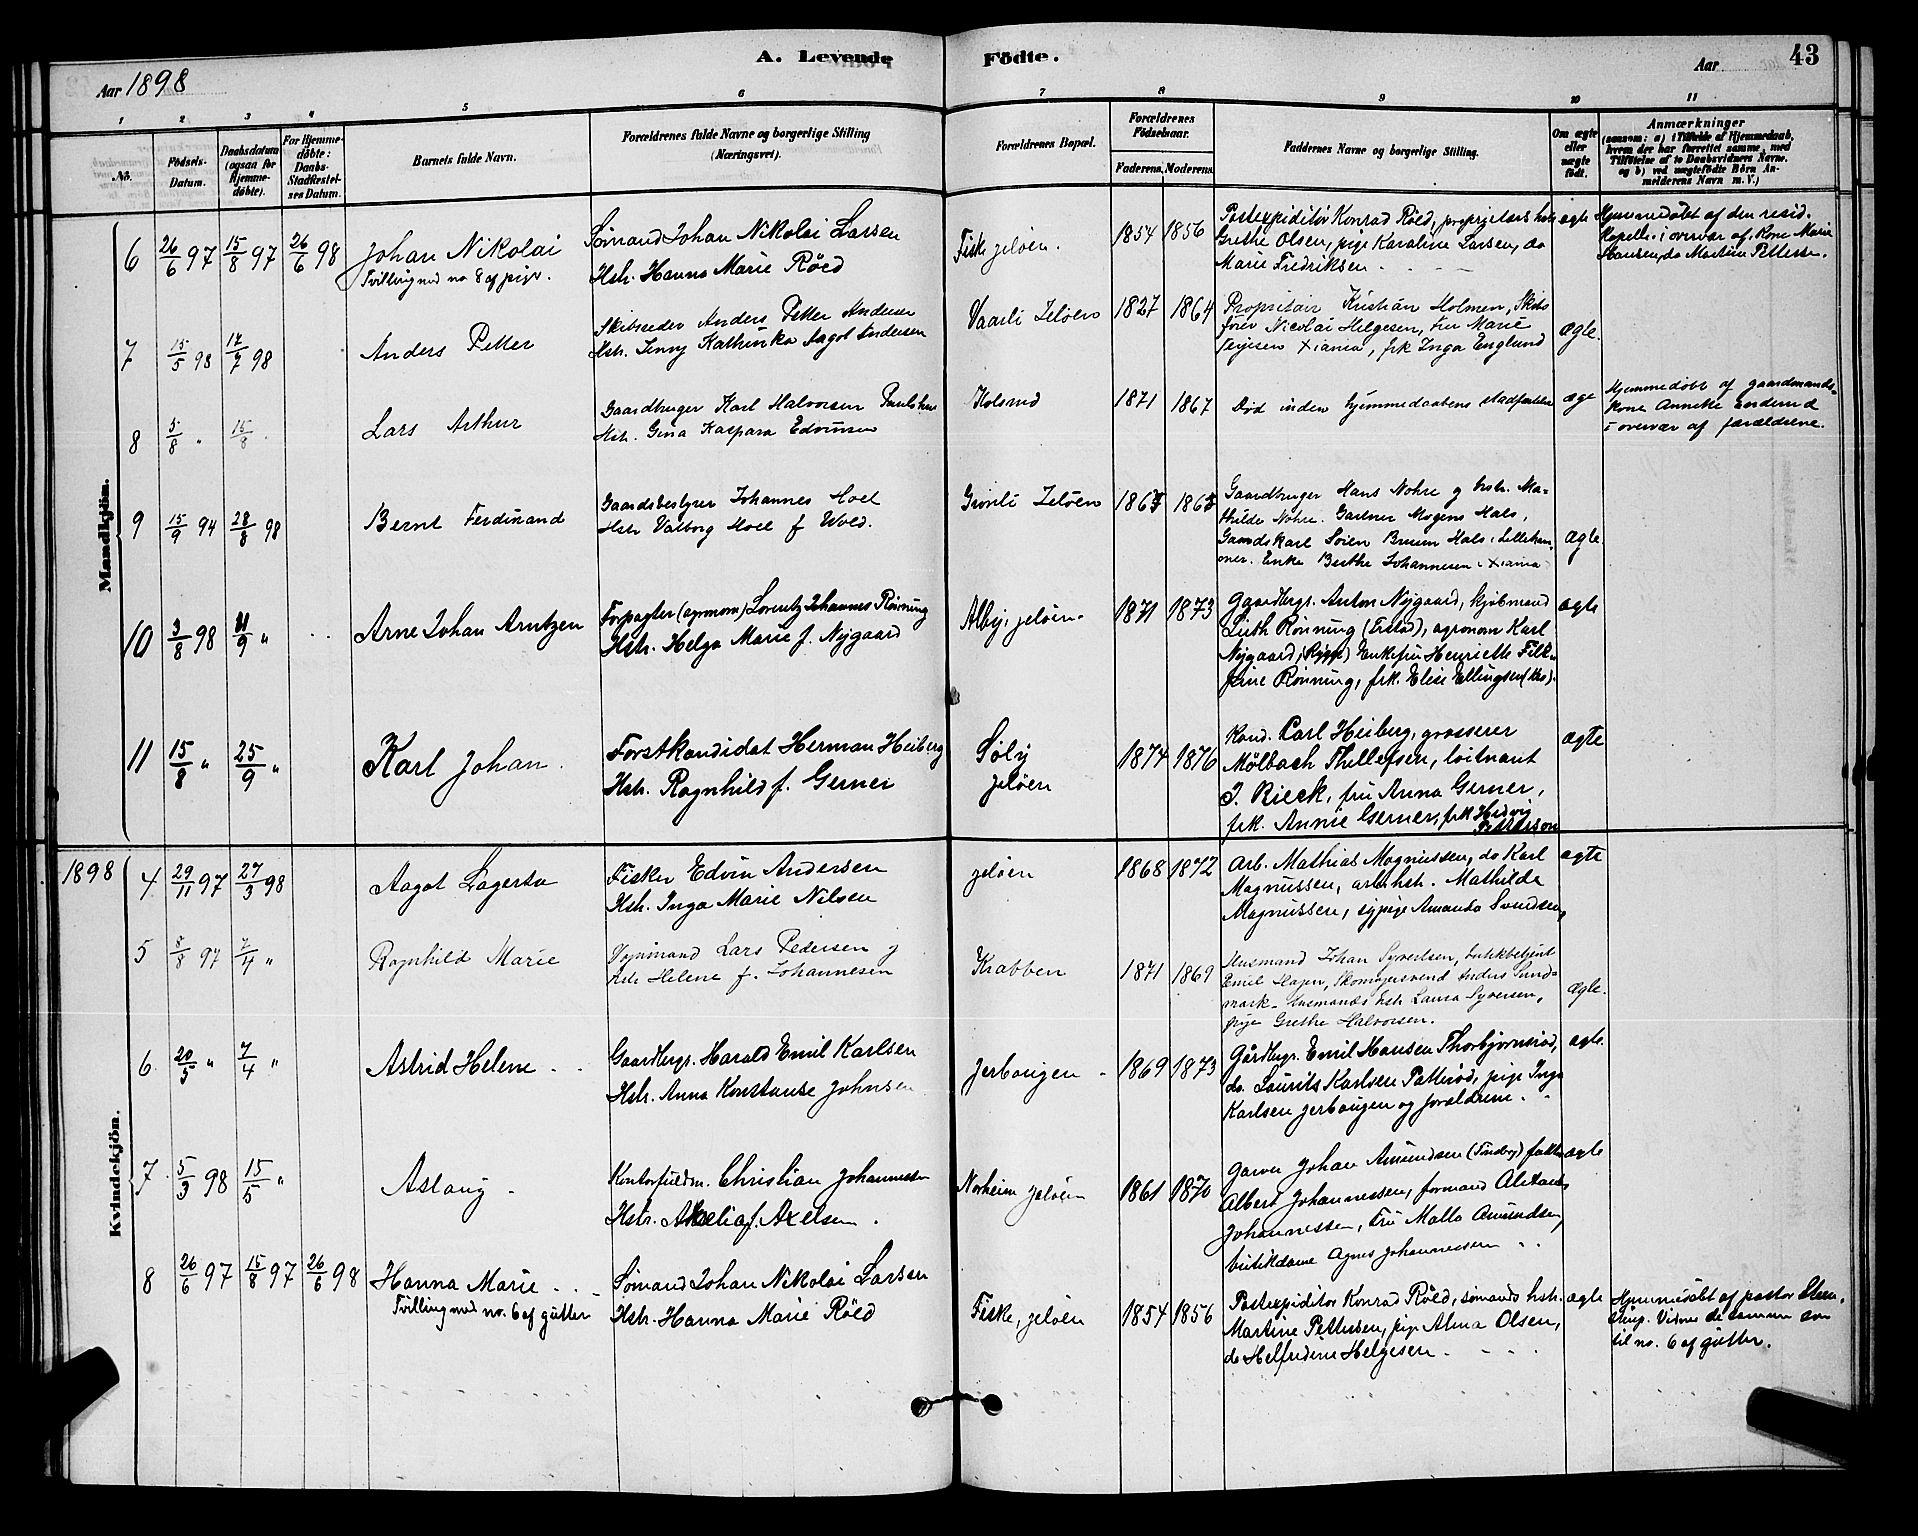 Aar 1898
A. Levende Födte.
Aar
43
1 2 3 4 5 6 7 8 9 10 11
No.
Födsels-Datum.
Daabsdatum (ogsaa for Hjemmedöbte).
For Hjemmedöbte: Daabs-Stadfæstelses Datum.
Barnets fulde Navn.
Forældrenes fulde Navne og borgerlige Stilling (Næringsvei).
Forældrenes Bopæl.
Forældrenes Födselsaar.
Faderens. Moderens.
Faddernes Navne og borgerlige Stilling.
Om ægte eller uægte födt.
Anmærkninger
(saasom: a) i Tilfælde af Hjemmedaab, hvem der har forrettet samme, med Tilföielse af to Daabsvidners Navne. og b) ved uægtefödte Börn Anmelderens Navn m. V.)
Mandkjön.
6 26/6 97 15/8 97 26/6 98
Johan Nikolai
Tvilling med no 8 af piger.
Sömand Johan Nikolai Larsen
Hstr. Hanna Marie Röed
Fiske jelöen.
1854 1856
Postexpeditör Konrad Röed, proprjetærs hstr
Grethe Olsen, pige Karoline Larsen, do
Marie Fredriksen
ægte
Hjemmedöbt af den resid.
Kapellan i overvær af Kone Marie
Hansen, do Martine Pettersen.
7 15/5 98 17/7 98
Anders Petter
Skibsreder Anders Petter Andersen
Hstr. Jenny Kathinka Aagot Andersen
Vaarli Jelöen
1827 1864
Propritair Kristian Holmen, Skibs
förer Nicolai Helgesen, Fru Marie
Xiania, frk Inga Englund
ægte.
8 5/8 " 15/8 "
Lars Arthur
Gaardbruger Karl Halvorsen
Hstr. Gina Kaspara Edvinsen
Kolsrud
1871 1867
Död inden hjemmedaabens stadfæstelse
ægte
Hjemmedöbt af gaardmands-
kone Annette
i overvær af forældrene.
9 15/9 94 28/8 98
Bernt Ferdinand
Gaardsbestyrer Johannes Hoel
Hstr Valborg Hoel f Wold.
Grönli Jelöen
Gaardbruger Hans Nohre og hstr. Ma-
thilde Nohre. Gartner Mogens Hals,
Gaardskarl Sören Bruun Hals, Lilleham-
mer. Enke Berthe Johannesen Xiania
ægte.
10 3/8 98 11/9 "
Arne Johan Arntzen
Forpagter (agronom) Lorentz Johannes Rönning
Hstr. Helga Marie f. Nygaard
Alby, jelöen.
1871 1873
Gaardbrgr. Anton Nygaard, kjöbmand
Rönning agronom Karl
Nygaard, (Rygge) Enkefru Henriette
Rönning, frk. Elise Ellingsen
ægte
11 15/8 " 25/9 "
Karl Johan.
Forstkandidat Herman Heiberg
Hstr. Ragnhild f. Gerner
Söly
jelöen
1874 1876
Kand. Carl Heiberg, grosserer
Mölbach Thellefsen, löitnant
J. Rieck, fru Anna Gerner,
frk. Annie Gerner, frk Hedvig
Petterson
ægte
Kvindekjön.
1898
4. 29/11 97 27/3 98
Aagot Lagerta
Fisker Edvin Andersen
Hstr. Inga Marie Nilsen
jelöen
1868 1872
Arb. Mathias Magnussen, do Karl
Magnussen, arb. hstr. Mathilde
Magnussen, sypige Amanda Svendsen,
ægte
5 8/8 97 7/4 "
Ragnhild Marie
Vognmand Lars Pedersen og
hstr Helene f. Johannesen
Krabben
1871 1869
Husmand Johan Syvertsen, butikbetjent
Emil Hagen, Skomagersvend Anders Sund-
mark, husmands hstr Laura Syversen,
pige Grethe Halvorsen.
ægte.
6. 20/5 " 7/4 "
Astrid Helene
Gaardbrgr. Harald Emil Karlsen
Hstr. Anna Konstanse Johnsen
Jerbougen
1869 1873
Gårdbrgr. Emil Hansen Thorbjörnsröd,
do. Laurits Karlsen Patteröd, pige Inga
Karlsen jerbougen og forældrene.
ægte
7. 5/3 98 15/5 "
Aslaug
Kontorfuldm. Christian Johannesen
Hstr. Axelia f. Axelsen.
Norheim jelöen
1861 1870
Garver Johan Amundsen
Albert Johannessen, formand
Johannessen, Fru Malla Amundsen,
butikdame Agnes Johannessen
ægte
8 26/6 97 15/8 97 26/6 98
Hanna Marie
Tvilling med no. 6 af gutter
Sömand Johan Nikolai Larsen
Hstr. Hanna Marie Röed
Fiske, jelöen
1854 1856
Postexpeditör Konrad Röed, sömands hstr.
Martine Pettersen, pige Alma Olsen,
do Helfridine Helgesen
ægte
Hjemmedöbt af pastor
Vidner de samme som
til no. 6 af gutter.